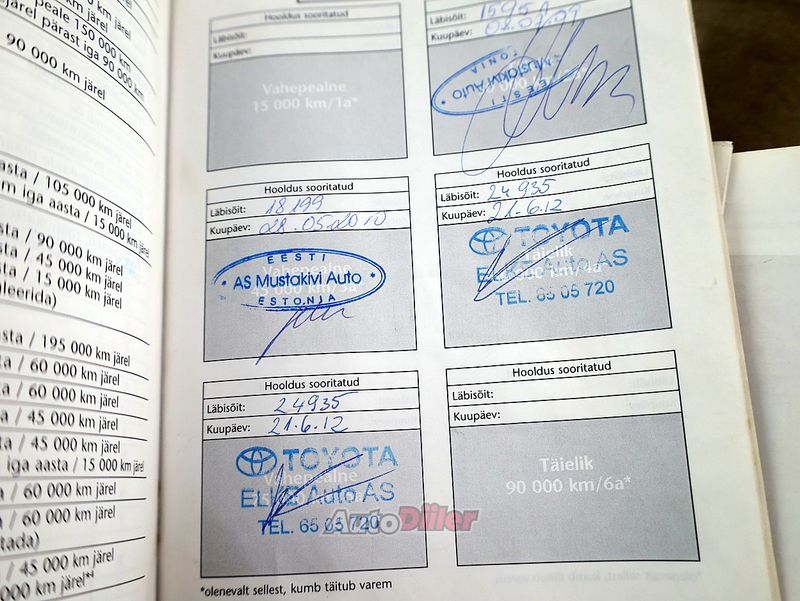 peale 150 000 km
järel pärast iga 90 000 km
90 000 km järel
asta / 105 000 km järel
m iga aasta / 15 000 km järel
sta / 90 000 km järel
sta / 45 000 km järel
sta / 15 000 km järel
aleerida)
sta / 195 000 km järel
ta / 60 000 km järel
ta / 60 000 km järel
ta / 45 000 km järel
ta / 45 000 km järel
iga aasta / 15 000 km järel
ta / 60 000 km järel
ta / 60 000 km järel
tada)
/ 45 000 km järel
000 km järel*⁴
Hooldus sooritatud
Läbisõit:
Kuupäev:
Vahepealne
15 000 km/1a*
Läbisõit:
Kuupäev:
EESTI
Mustakivi Auto
TONIA
Hooldus sooritatud
Läbisõit: 18199
Kuupäev: 028.05.2010
Vahepealne
EESTI
AS Mustakivi Auto
ESTONIA
Hooldus sooritatud
Läbisõit: 24935
Kuupäev: 21.6.12
TOYOTA
Täielik
ELKE Auto AS
TEL. 65 05 720
Hooldus sooritatud
Läbisõit: 24935
Kuupäev: 21.6.12
TOYOTA
Vahepealne
ELKE Auto AS
TEL. 65 05 720
Hooldus sooritatud
Läbisõit:
Kuupäev:
Täielik
90 000 km/6a*
*olenevalt sellest, kumb täitub varem
AutoDiller